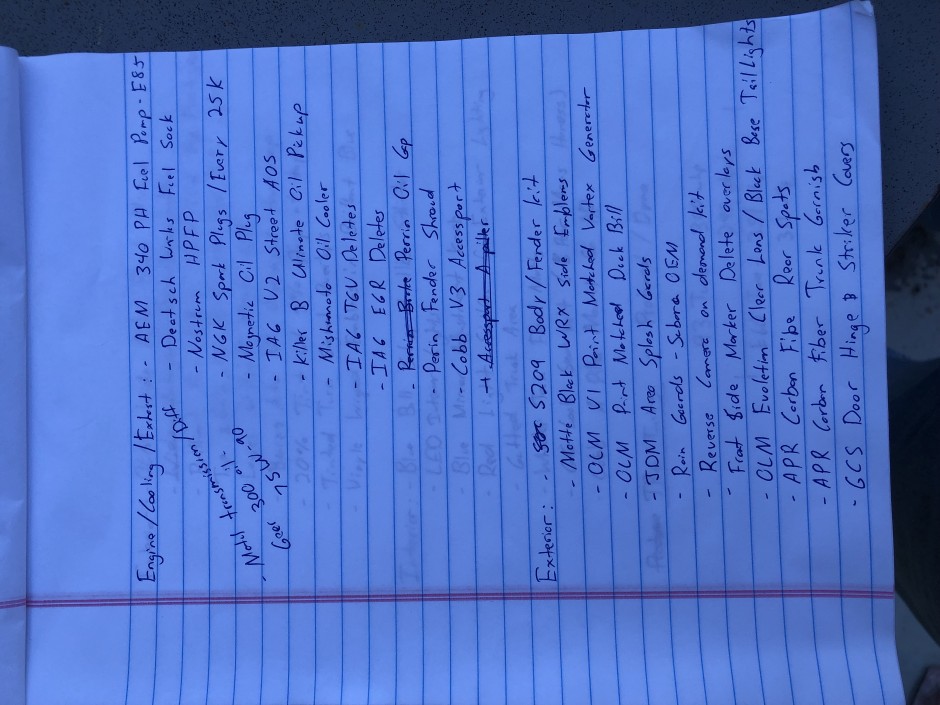 Engine/Cooling/Exhast: - AEM 340 PH Fuel Pump - E85
- Deatsch Works Fuel Sock
- Nostrum HPFP
- NGK Spark Plugs / Every 25K
- Magnetic Oil Plug
- IAG V2 Street AOS
- Killer B Ultimate Oil Pickup
- Mishumoto Oil Cooler
- IAG TGV Deletes
- IAG EGR Deletes
- Perrin Brite Perrin Oil Cap
- Perin Fender Shroud
- Cobb V3 Accessport
- Accessport A-piller
- Motul transmission/Diff
Gear 300 oil -
75W-90
Exterior: - S209 Body/Fender kit
- Matte Black WRX Side Emblems
- OLM V1 Paint Matched Vortex Generator
- OLM Paint Matched Duck Bill
- JDM Area Splash Gaurds
- Rain Guards - Subaru OEM
- Reverse Camera on demand kit
- Front Side Marker Delete overlays
- OLM Evolution Clear Lens / Black Base Tail Lights
- APR Carbon Fibe Rear Spats
- APR Carbon Fiber Trunk Garnish
- GCS Door Hinge & Striker Covers